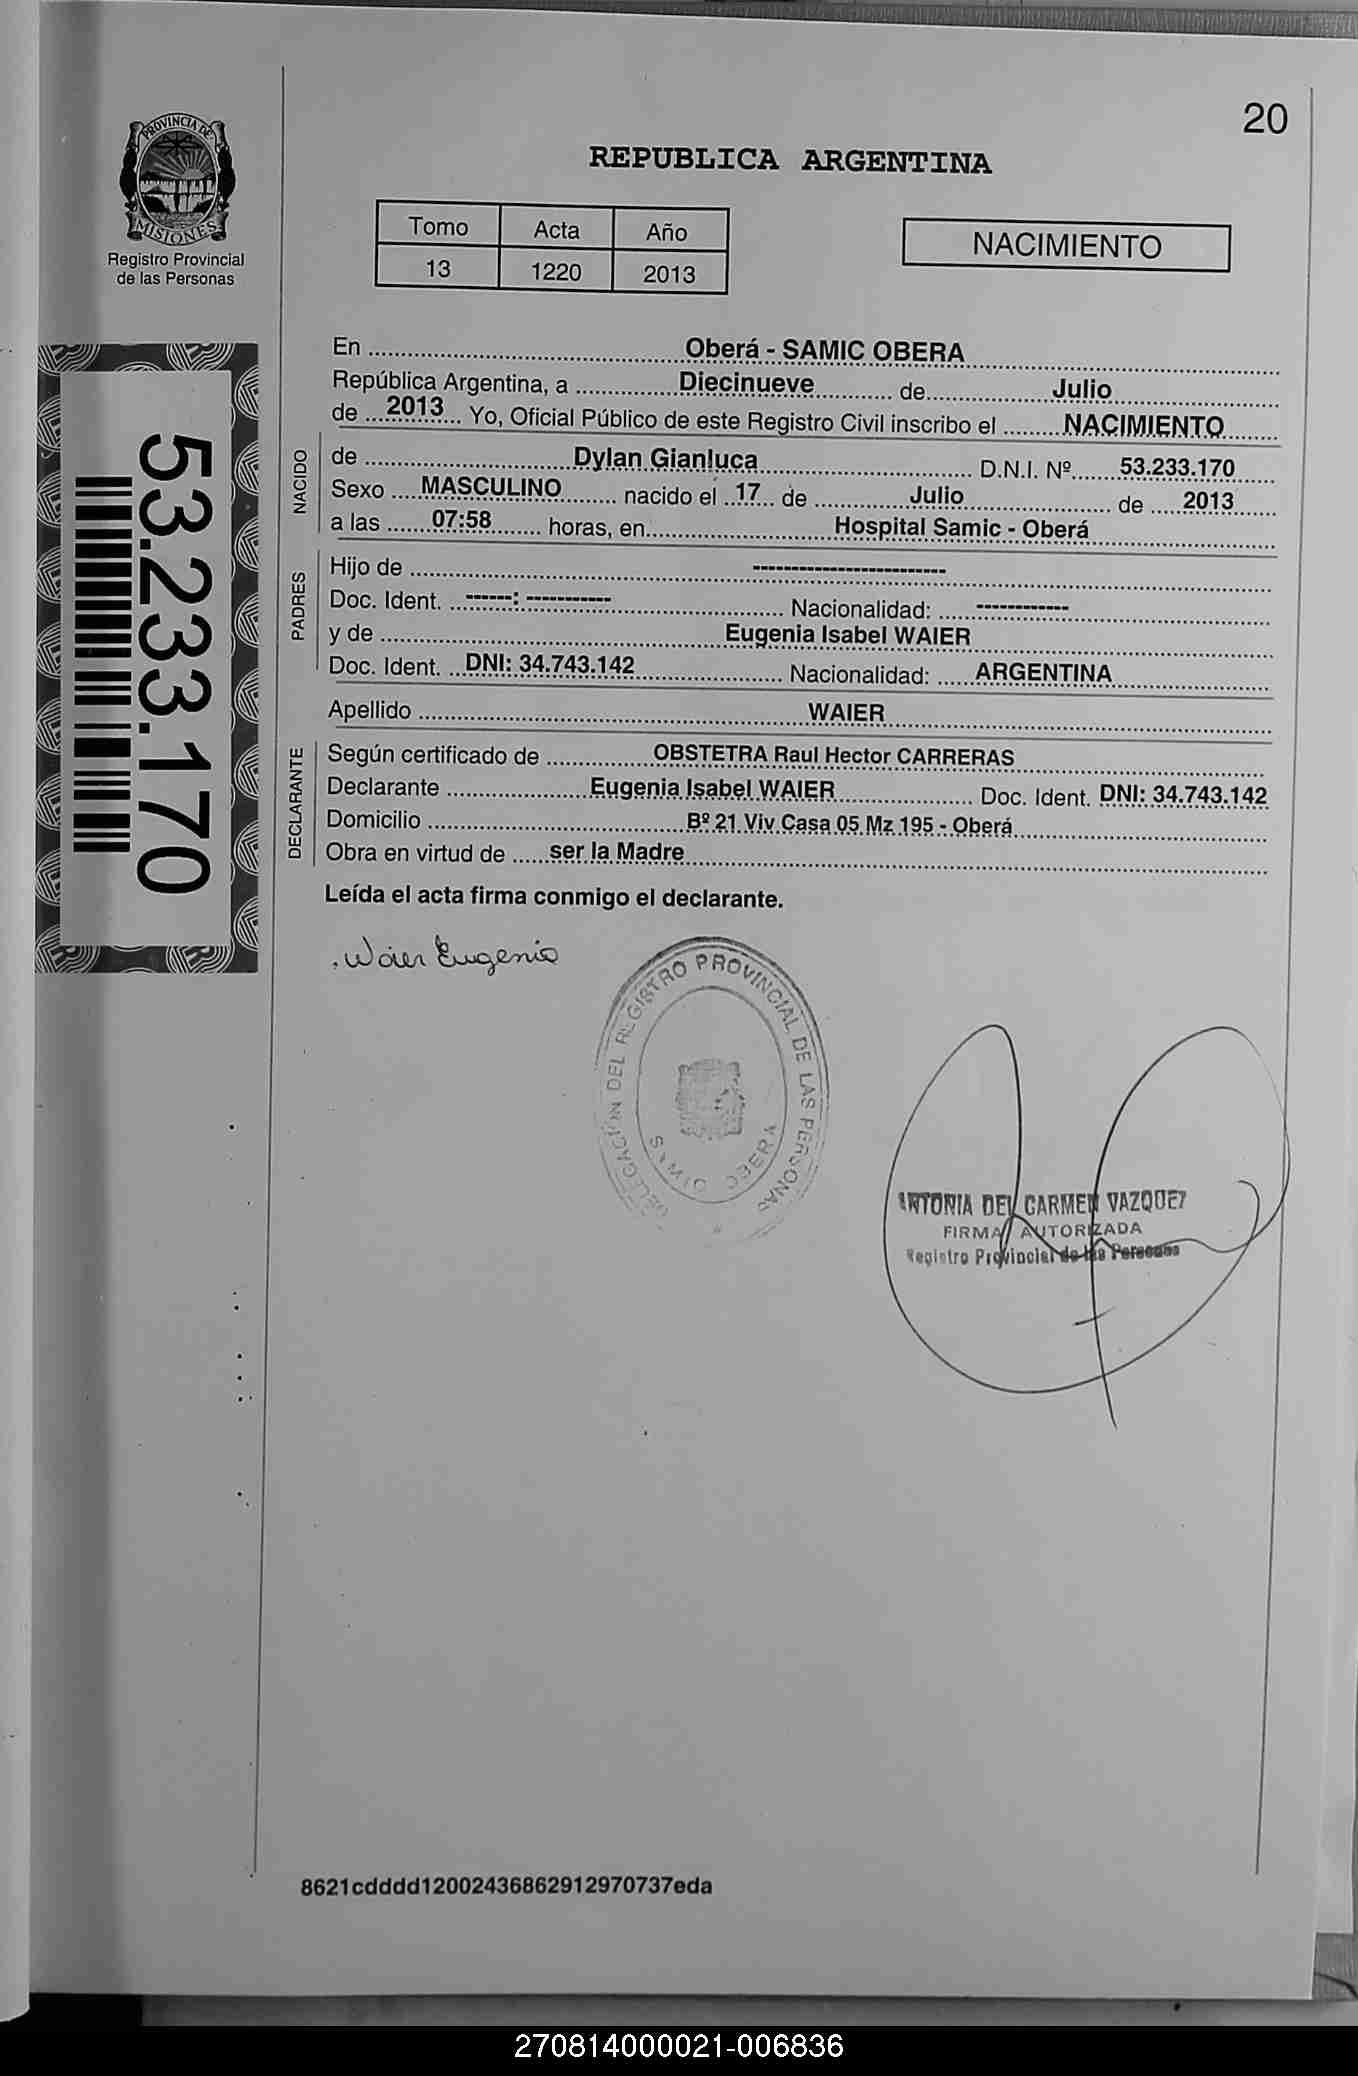 20
PROVINCIA DE
MISIONES
Registro Provincial
de las Personas
REPUBLICA ARGENTINA
Tomo Acta Año
13 1220 2013
NACIMIENTO
53.233.170
En Oberá - SAMIC OBERA
República Argentina, a Diecinueve de Julio
de 2013 Yo, Oficial Público de este Registro Civil inscribo el NACIMIENTO
NACIDO
de Dylan Gianluca D.N.I. Nº 53.233.170
Sexo MASCULINO nacido el 17 de Julio de 2013
a las 07:58 horas, en Hospital Samic - Oberá
PADRES
Hijo de -------------------------
Doc. Ident. ------: ----------- Nacionalidad: ------------
y de Eugenia Isabel WAIER
Doc. Ident. DNI: 34.743.142 Nacionalidad: ARGENTINA
Apellido WAIER
DECLARANTE
Según certificado de OBSTETRA Raul Hector CARRERAS
Declarante Eugenia Isabel WAIER Doc. Ident. DNI: 34.743.142
Domicilio Bº 21 Viv Casa 05 Mz 195 - Oberá
Obra en virtud de ser la Madre
Leída el acta firma conmigo el declarante.
Waier Eugenia
DELEGACION DEL REGISTRO PROVINCIAL DE LAS PERSONAS
SAMIC OBERA
ANTONIA DEL CARMEN VAZQUEZ
FIRMA AUTORIZADA
Registro Provincial de las Personas
8621cdddd12002436862912970737eda
270814000021-006836